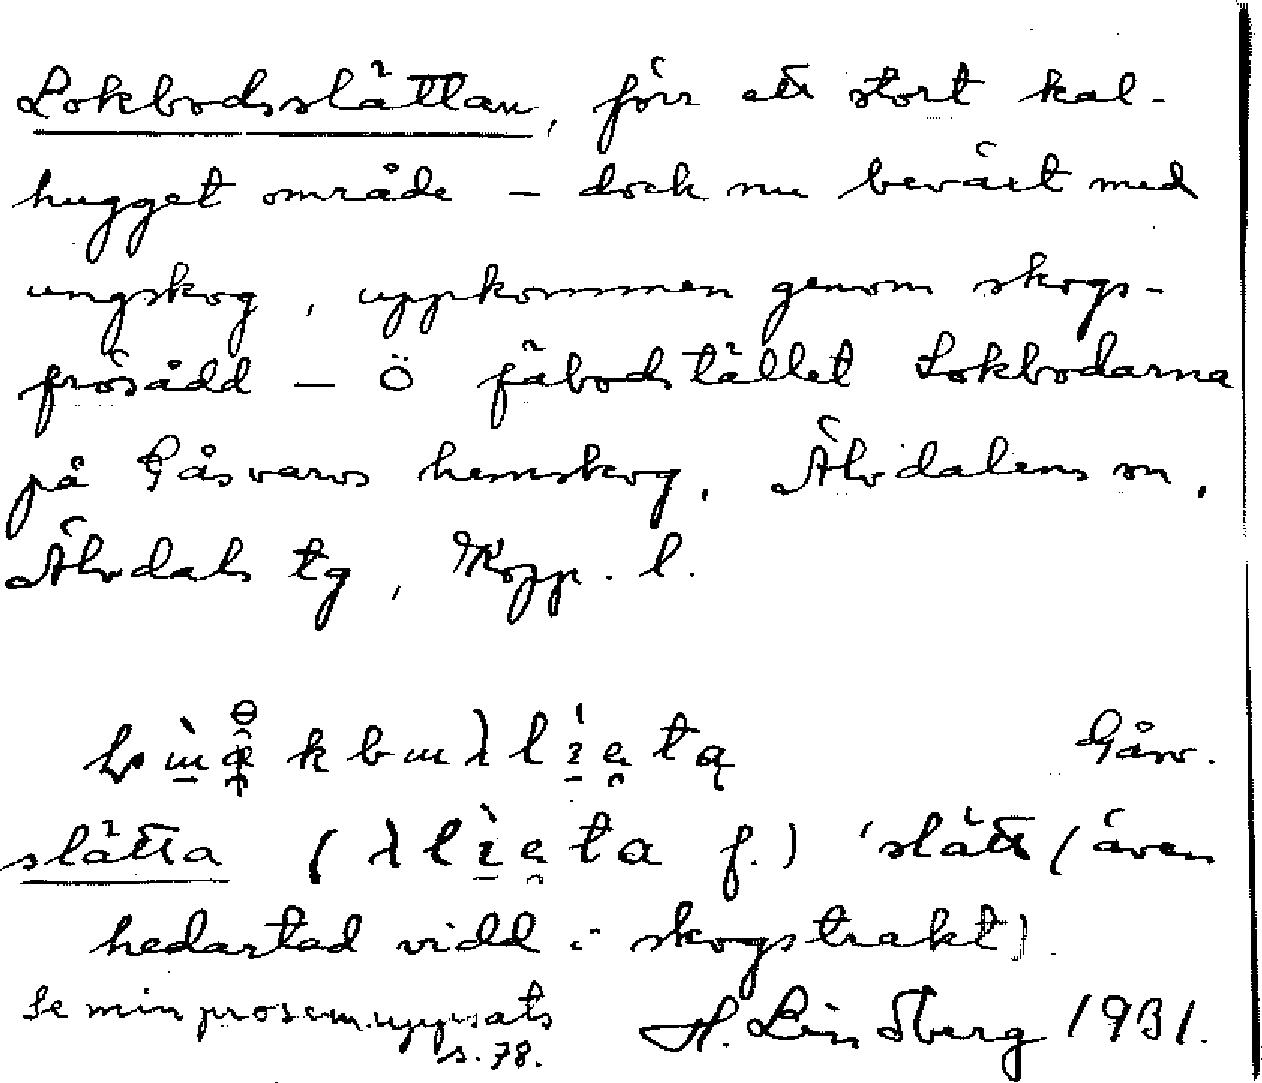 Lokbodsslättan, förr ett stort kal-
hugget område – dock nu beväxt med
ungskog, uppkommen genom skogs-
frösådd – Ö fäbodstället Lokbodarna
på Gåsvarvs hemskog, Älvdalens sn,
Älvdals tg, Kopp. l.
Gåsv.
slätta (f.) 'slätt (även
hedartad vidd i skogstrakt)
Se min prosem.uppsats
s. 78.
H. Lindberg 1931.